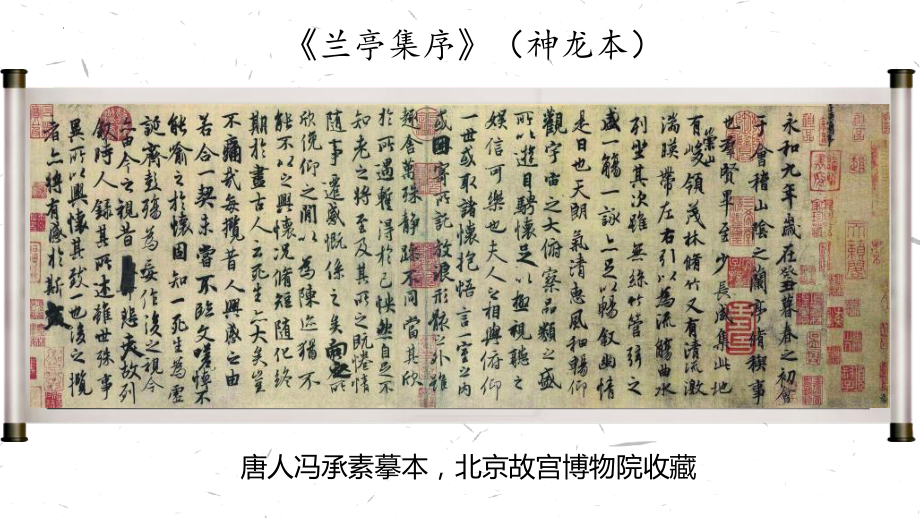 《兰亭集序》（神龙本）
永和九年歲在癸丑暮春之初會
于會稽山陰之蘭亭脩稧事
也群賢畢至少長咸集此地
有崇山峻領茂林脩竹又有清流激
湍暎帶左右引以為流觴曲水
列坐其次雖無絲竹管弦之
盛一觴一詠亦足以暢敘幽情
是日也天朗氣清惠風和暢仰
觀宇宙之大俯察品類之盛
所以遊目騁懷足以極視聽之
娛信可樂也夫人之相與俯仰
一世或取諸懷抱悟言一室之內
或因寄所託放浪形骸之外雖
趣舍萬殊靜躁不同當其欣
於所遇暫得於己怏然自足不
知老之將至及其所之既惓情
隨事遷感慨係之矣向之所
欣俛仰之閒以為陳迹猶不
能不以之興懷況脩短隨化終
期於盡古人云死生亦大矣豈
不痛哉每攬昔人興感之由
若合一契未嘗不臨文嗟悼不
能喻之於懷固知一死生為虛
誕齊彭殤為妄作後之視今
亦由今之視昔悲夫故列
敘時人錄其所述雖世殊事
異所以興懷其致一也後之攬
者亦將有感於斯文
唐人冯承素摹本，北京故宫博物院收藏